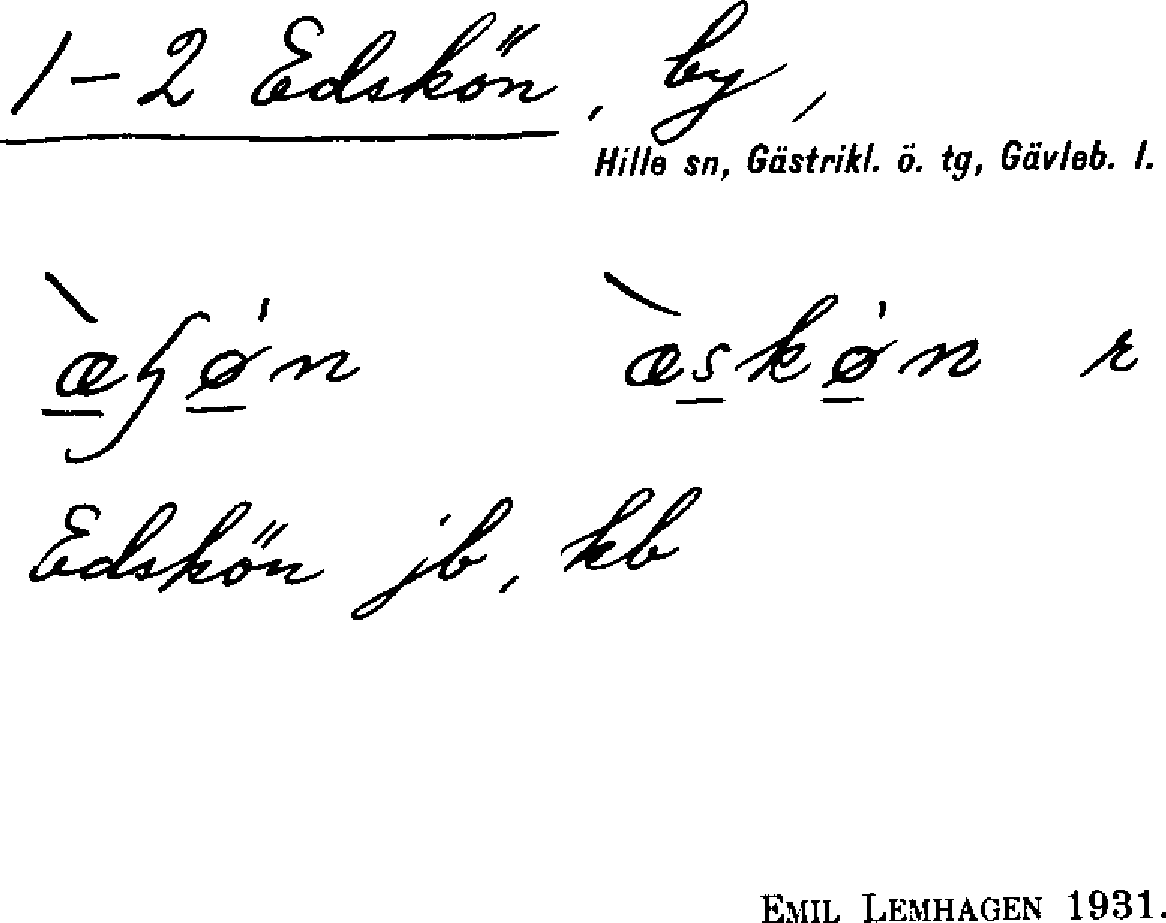 1-2 Edskön, by,
Hille sn, Gästrikl. ö. tg, Gävleb. l.
æskøn r
Edskön jb, kb
EMIL LEMHAGEN 1931.